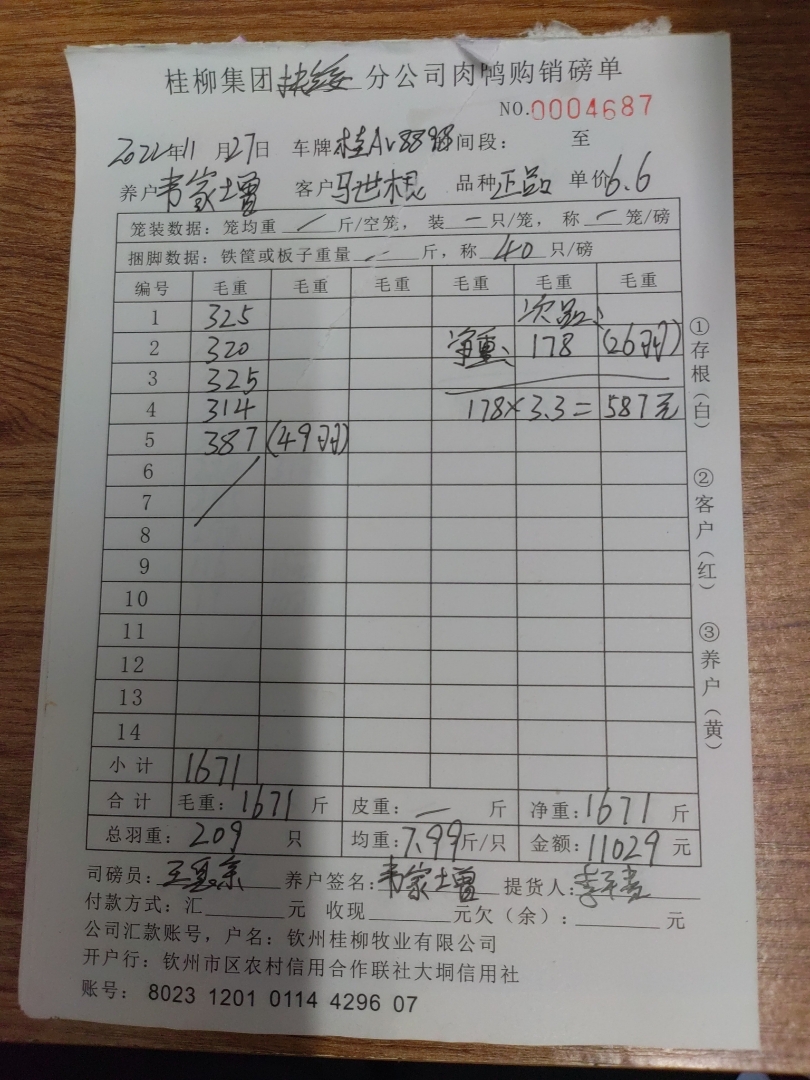 桂柳集团扶绥分公司肉鸭购销磅单
NO.0004687
2022年11月27日 车牌桂A 时间段: 至
养户韦家增 客户马世根 品种正品 单价6.6
笼装数据:笼均重 / 斤/空笼,装 一 只/笼,称 一 笼/磅
捆脚数据:铁筐或板子重量 一 斤,称 40 只/磅
编号 毛重 毛重 毛重 毛重 毛重 毛重
1 325 次品:
2 320 净重: 178 (26羽)
3 325
4 314 178×3.3= 587元
5 387 (49羽)
6
7
8
9
10
11
12
13
14
小计 1671
合计 毛重:1671斤 皮重:一 斤 净重:1671斤
总羽重:209 只 均重:7.99斤/只 金额:11029元
司磅员: 养户签名:韦家增 提货人:
付款方式:汇 元 收现 元欠(余): 元
公司汇款账号,户名:钦州桂柳牧业有限公司
开户行:钦州市区农村信用合作联社大垌信用社
账号: 8023 1201 0114 4296 07
①存根(白) ②客户(红) ③养户(黄)